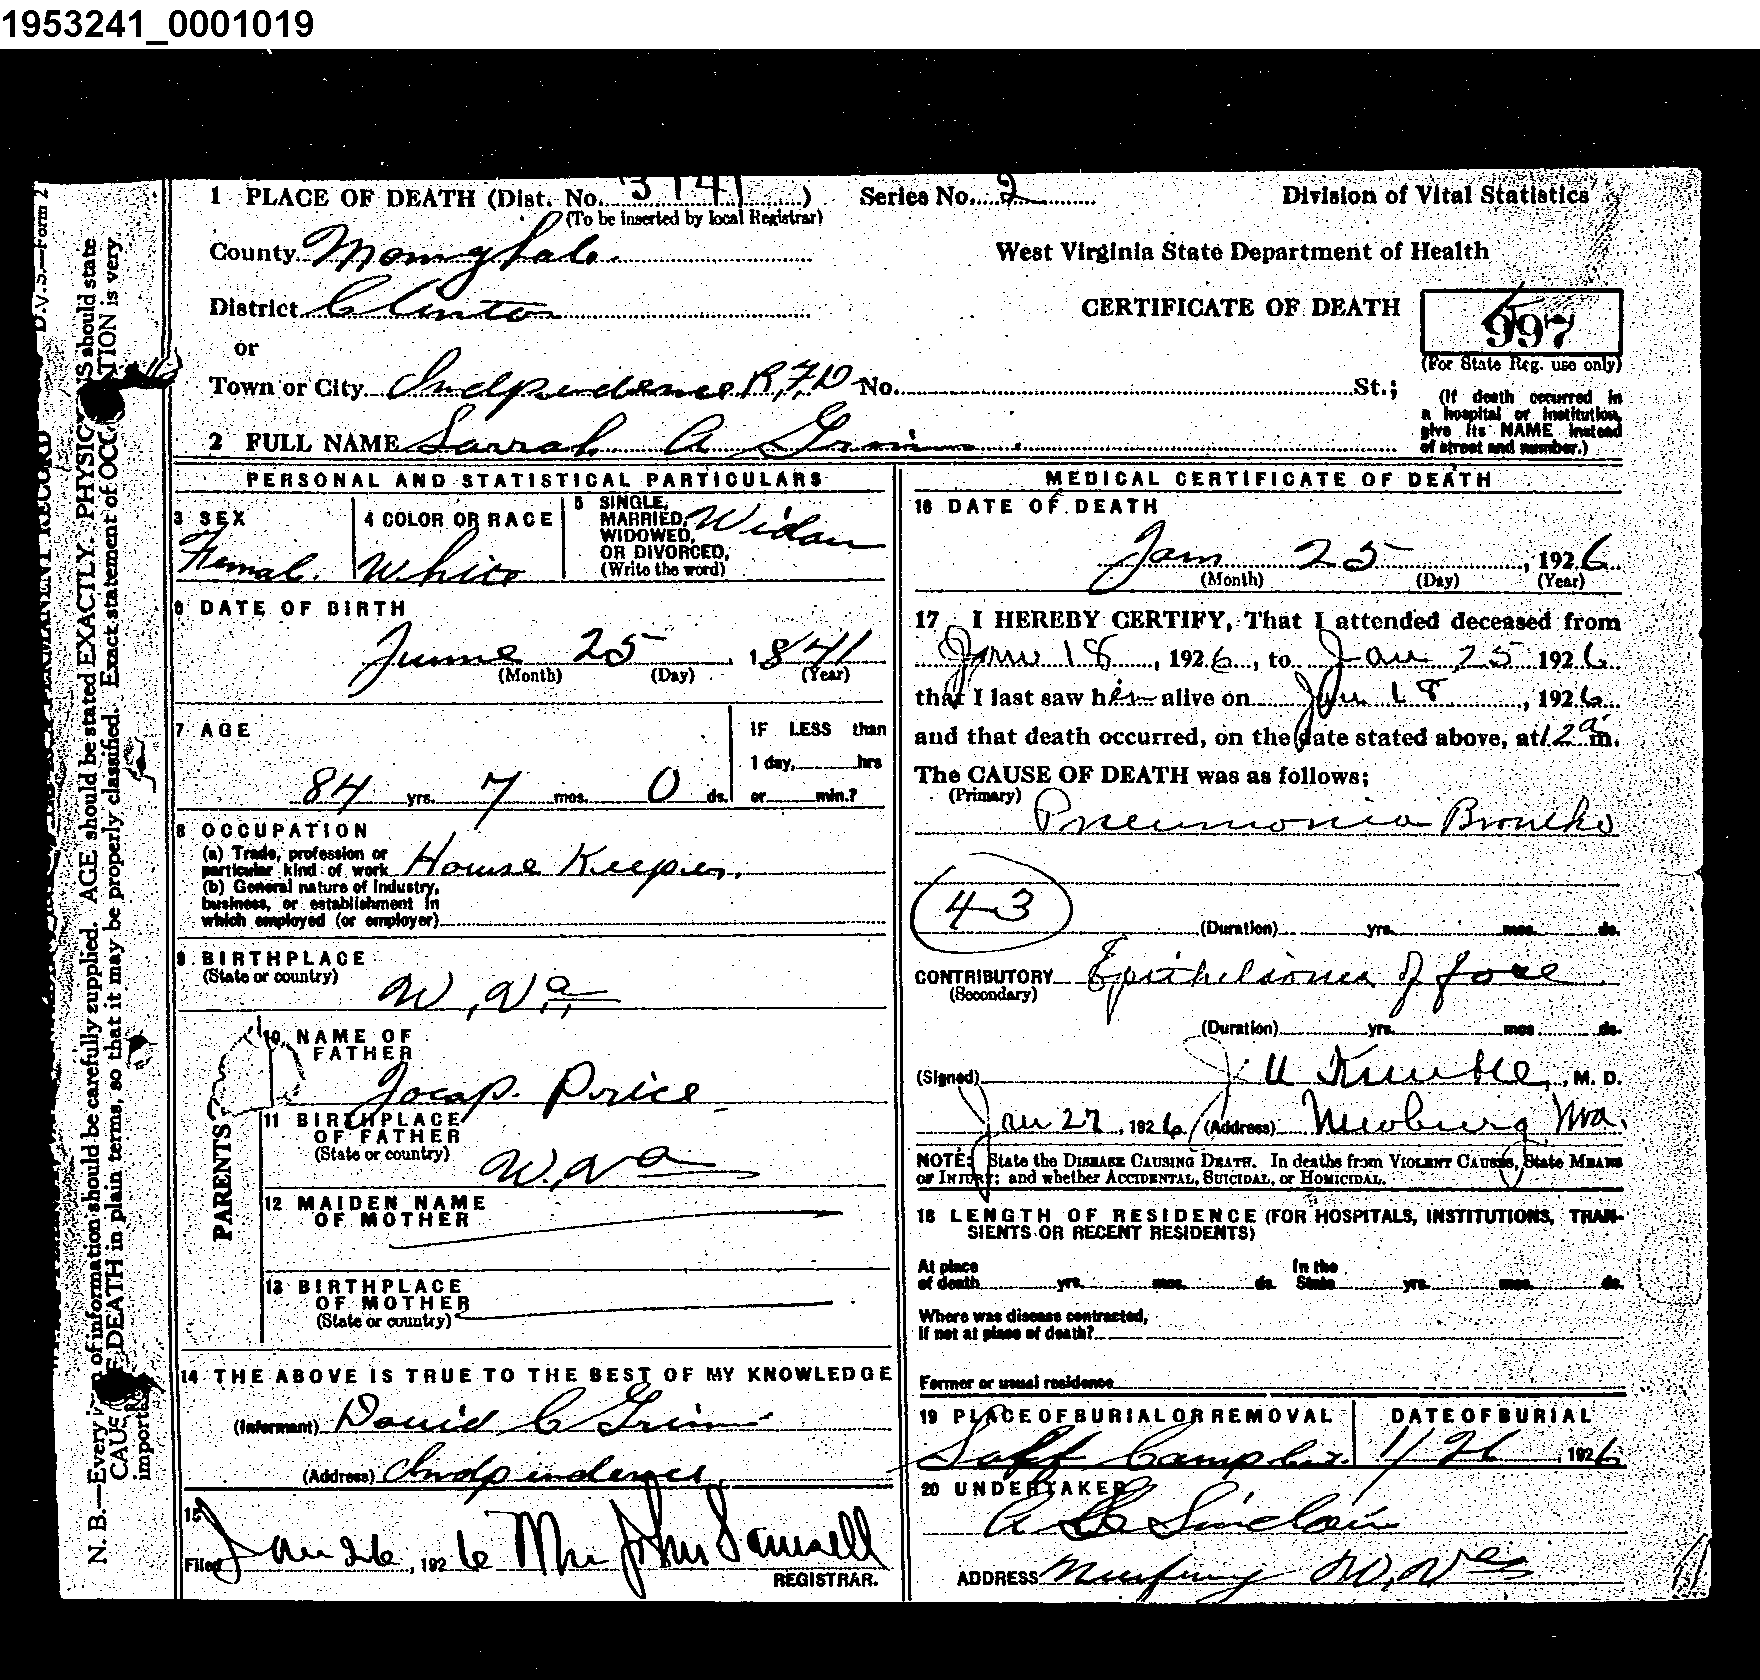 1953241_0001019
1 PLACE OF DEATH (Dist. No. 3141 ) Series No. 2 Division of Vital Statistics
(To be inserted by local Registrar)
County West Virginia State Department of Health
District Clinton CERTIFICATE OF DEATH 997
(For State Reg. use only)
or
Town or City Independence R.F.D No. St.;
(If death occurred in
a hospital or institution,
give its NAME instead
of street and number.)
2 FULL NAME Sarrah A Grimm
PERSONAL AND STATISTICAL PARTICULARS
3 SEX
Femal
4 COLOR OR RACE
White
5 SINGLE,
MARRIED,
WIDOWED,
OR DIVORCED,
(Write the word)
Widow
6 DATE OF BIRTH
June 25, 1841
(Month) (Day) (Year)
7 AGE
84 yrs. 7 mos. 0 ds.
IF LESS than
1 day, hrs
or min.?
8 OCCUPATION
(a) Trade, profession or
particular kind of work House Keeper
(b) General nature of industry,
business, or establishment in
which employed (or employer)
9 BIRTHPLACE
(State or country)
W. Va
PARENTS
10 NAME OF
FATHER
Price
11 BIRTHPLACE
OF FATHER
(State or country)
W. Va
12 MAIDEN NAME
OF MOTHER
13 BIRTHPLACE
OF MOTHER
(State or country)
14 THE ABOVE IS TRUE TO THE BEST OF MY KNOWLEDGE
(Informant) David C Grimm
(Address) Indpendence
15
Filed Jan 26, 1926 John Samsell
REGISTRAR.
MEDICAL CERTIFICATE OF DEATH
16 DATE OF DEATH
Jan 25, 1926
(Month) (Day) (Year)
17 I HEREBY CERTIFY, That I attended deceased from
Jan 18, 1926, to Jan 25 1926
that I last saw her alive on Jan 18, 1926
and that death occurred, on the date stated above, at 12 a m.
The CAUSE OF DEATH was as follows:
(Primary)
Pneumonia Broncho
43
(Duration) yrs. mos. ds.
CONTRIBUTORY Epithelioma of face
(Secondary)
(Duration) yrs. mos. ds.
(Signed) M. D.
Jan 27, 1926 (Address) Newburg Wva.
NOTE: State the DISEASE CAUSING DEATH. In deaths from VIOLENT CAUSES, State MEANS
OF INJURY; and whether ACCIDENTAL, SUICIDAL, or HOMICIDAL.
18 LENGTH OF RESIDENCE (FOR HOSPITALS, INSTITUTIONS, TRAN-
SIENTS OR RECENT RESIDENTS)
At place
of death yrs. mos. ds.
In the
State yrs. mos. ds.
Where was disease contracted,
if not at place of death?
Former or usual residence
19 PLACE OF BURIAL OR REMOVAL
DATE OF BURIAL
1/26, 1926
20 UNDERTAKER
Sinclair
ADDRESS W. Va
N. B.—Every of information should be carefully supplied. AGE should be stated EXACTLY. PHYSIC NS should state
CAUS DEATH in plain terms, so that it may be properly classified. Exact statement of OCC TION is very
important
D.V.S.—Form 2